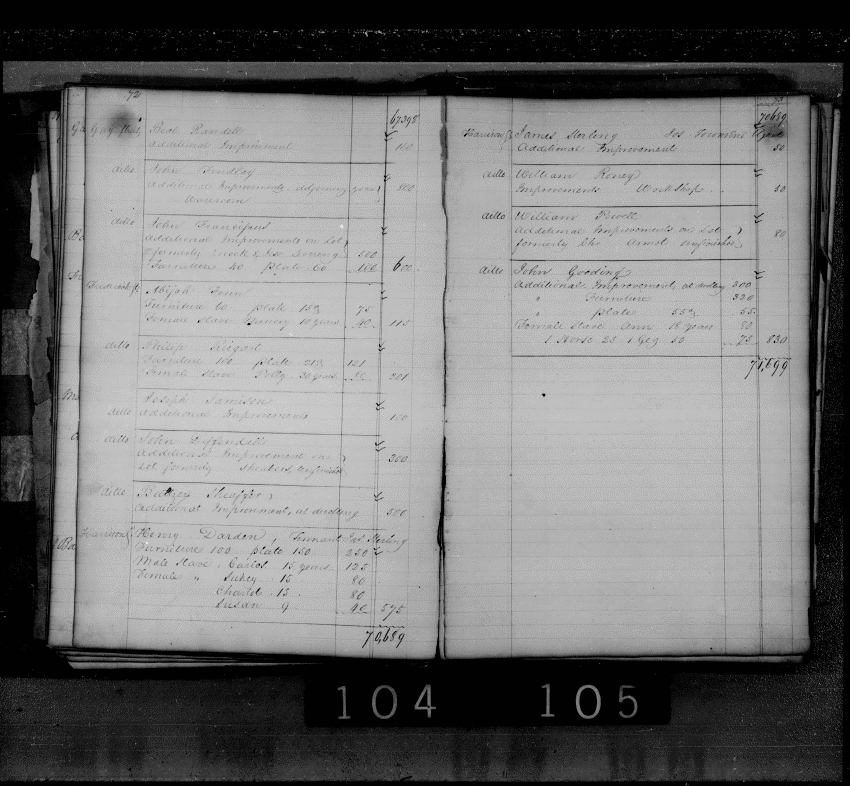 72
67398
Gay Street Beal Randall
Additional Improvement 100
ditto John Findlay
Additional Improvements adjoining 800
Museum
ditto John Franciscus
Additional Improvements on Lot
formerly 500
Furniture 40 Plate 60 100 600
Frederick St. Abijah
Furniture 60 Plate 15 75
Female Slave 10 years 40 115
ditto Philip
Furniture 100 Plate 21 121
Female Slave Polly 30 years 80 201
Joseph Jamison
ditto Additional Improvements 100
ditto John
Additional Improvement on 300
Lot formerly unfinished
ditto
Additional Improvement, at dwelling 500
Harrison St Henry Darden, Tennant Jas Sterling
Furniture 100 Plate 150 250
Male Slave, Carlos 15 years 125
Female " Sukey 15 80
Charlot 15 80
Susan 9 40 575
70,689
73
70689
Harrison St James Sterling Jos Townsend
Additional Improvement 50
ditto William Roney
Improvements Work Shop 50
ditto William Powell
Additional Improvements on Lot 80
formerly unfinished
ditto John Gooding
Additional Improvement, at dwelling 300
" Furniture 320
" Plate 55 55
Female Slave Ann 18 years 80
1 Horse 25 1 Gig 50 75 830
71,699
104 105